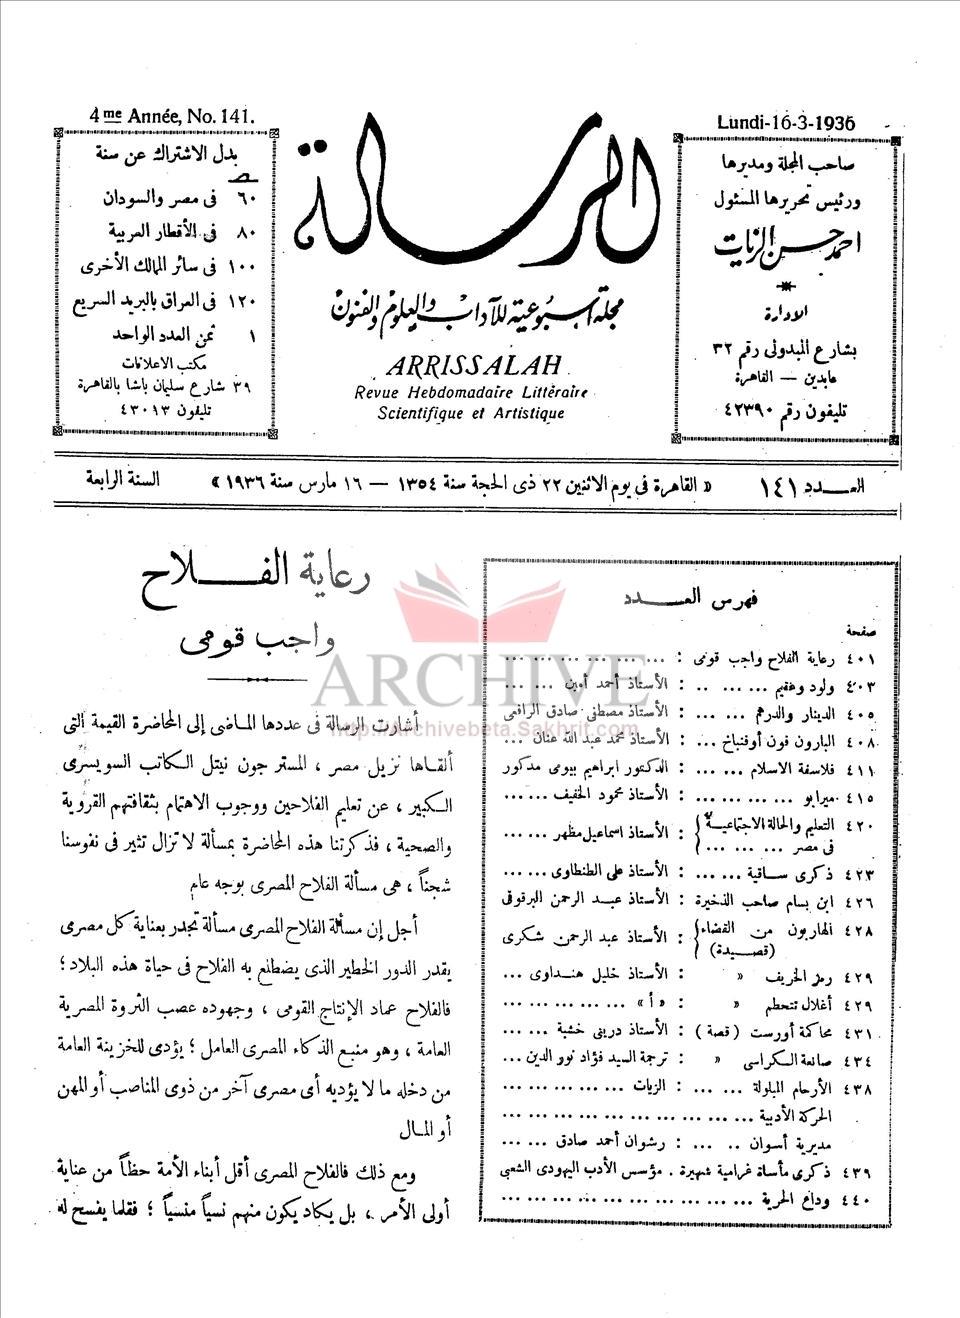 4me Année, No. 141.
Lundi-16-3-1936
صاحب المجلة ومديرها
ورئيس تحريرها المسئول
احمد حسن الزيات
الادارة
بشارع المبدولى رقم ٣٢
عابدين — القاهرة
تليفون رقم ٤٢٣٩٠
الرسالة
مجلة أسبوعية للآداب والعلوم والفنون
ARRISSALAH
Revue Hebdomadaire Littéraire
Scientifique et Artistique
بدل الاشتراك عن سنة
٦٠ فى مصر والسودان
٨٠ فى الأقطار العربية
١٠٠ فى سائر الممالك الأخرى
١٢٠ فى العراق بالبريد السريع
١ ثمن العدد الواحد
مكتب الاعلانات
٣٩ شارع سليمان باشا بالقاهرة
تليفون ٤٣٠١٣
العـــدد ١٤١ « القاهرة فى يوم الاثنين ٢٢ ذى الحجة سنة ١٣٥٤ — ١٦ مارس سنة ١٩٣٦ » السنة الرابعة
فهرس العـــدد
صفحة
٤٠١ رعاية الفلاح واجب قومى : ... ... ... ... ... ...
٤٠٣ ولود وعقيم ... ... .. : الأستاذ أحمد أمين ... ...
٤٠٥ الدينار والدرهم ... ... : الأستاذ مصطفى صادق الرافعى
٤٠٨ البارون فون أوفنباخ ... : الأستاذ محمد عبد الله عنان ...
٤١١ فلاسفة الاسلام ... ... : الدكتور ابراهيم بيومى مدكور
٤١٥ ميرابو ... ... ... ... : الأستاذ محمود الخفيف ... ...
٤٢٠ التعليم والحالة الاجتماعيـــة
فى مصر ... ... ... : الأستاذ اسماعيل مظهر ... ...
٤٢٣ ذكرى ساقية ... ... : الأستاذ على الطنطاوى ... ...
٤٢٦ ابن بسام صاحب الذخيرة : الأستاذ عبد الرحمن البرقوقى
٤٢٨ الهاربون من الفضاء
(قصـــيدة) : الأستاذ عبد الرحمن شكرى
٤٢٩ رمز الخريف » : الأستاذ خليل هنداوى ...
٤٢٩ أغلال تتحطم » : «أ» ... ... ... ... ...
٤٣١ محاكمة أورست (قصة) : الأستاذ درينى خشبة ... ...
٤٣٤ صانعة الكراسى » : ترجمة السيد فؤاد نور الدين ...
٤٣٨ الأرحام المبلولة ... ... : الزيات ... ... ... ... ...
الحركة الأدبية ... ... ... ... ... ... ... ... ...
مديرية أسوان .. ... : رشوان أحمد صادق ... ...
٤٣٩ ذكرى مأساة غرامية شهيرة . مؤسس الأدب اليهودى الشعبى
٤٤٠ وداع الحرية ... ... ... ... ... ... ... ... ...
رعاية الفـــلاح
واجب قومى
أشارت الرسالة فى عددها الماضى إلى المحاضرة القيمة التى
ألقـاها نزيل مصر ، المستر جون نيتل الكاتب السويسرى
الكبير ، عن تعليم الفلاحين ووجوب الاهتمام بثقافتهم القروية
والصحية ، فذكرتنا هذه المحاضرة بمسألة لا تزال تثير فى نفوسنا
شجناً ، هى مسألة الفلاح المصرى بوجه عام
أجل إن مسألة الفلاح المصرى مسألة تجدر بعناية كل مصرى
يقدر الدور الخطير الذى يضطلع به الفلاح فى حياة هذه البلاد ؛
فالفلاح عماد الإنتاج القومى ، وجهوده عصب الثروة المصرية
العامة ، وهو منبع الذكاء المصرى العامل ؛ يؤدى للخزينة العامة
من دخله ما لا يؤديه أى مصرى آخر من ذوى المناصب أو المهن
أو المـال
ومع ذلك فالفلاح المصرى أقل أبناء الأمة حظاً من عناية
أولى الأمر ، بل يكاد يكون منهم نسياً منسياً ؛ فقلما يفسح له
ARCHIVE
http://Archivebeta.Sakhrit.com